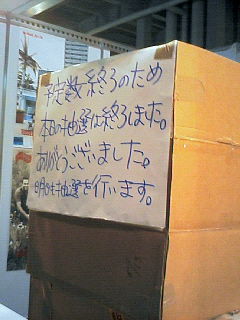 予定数終了のため
本日の抽選は終了しました。
ありがとうございました。
明日も抽選を行います。